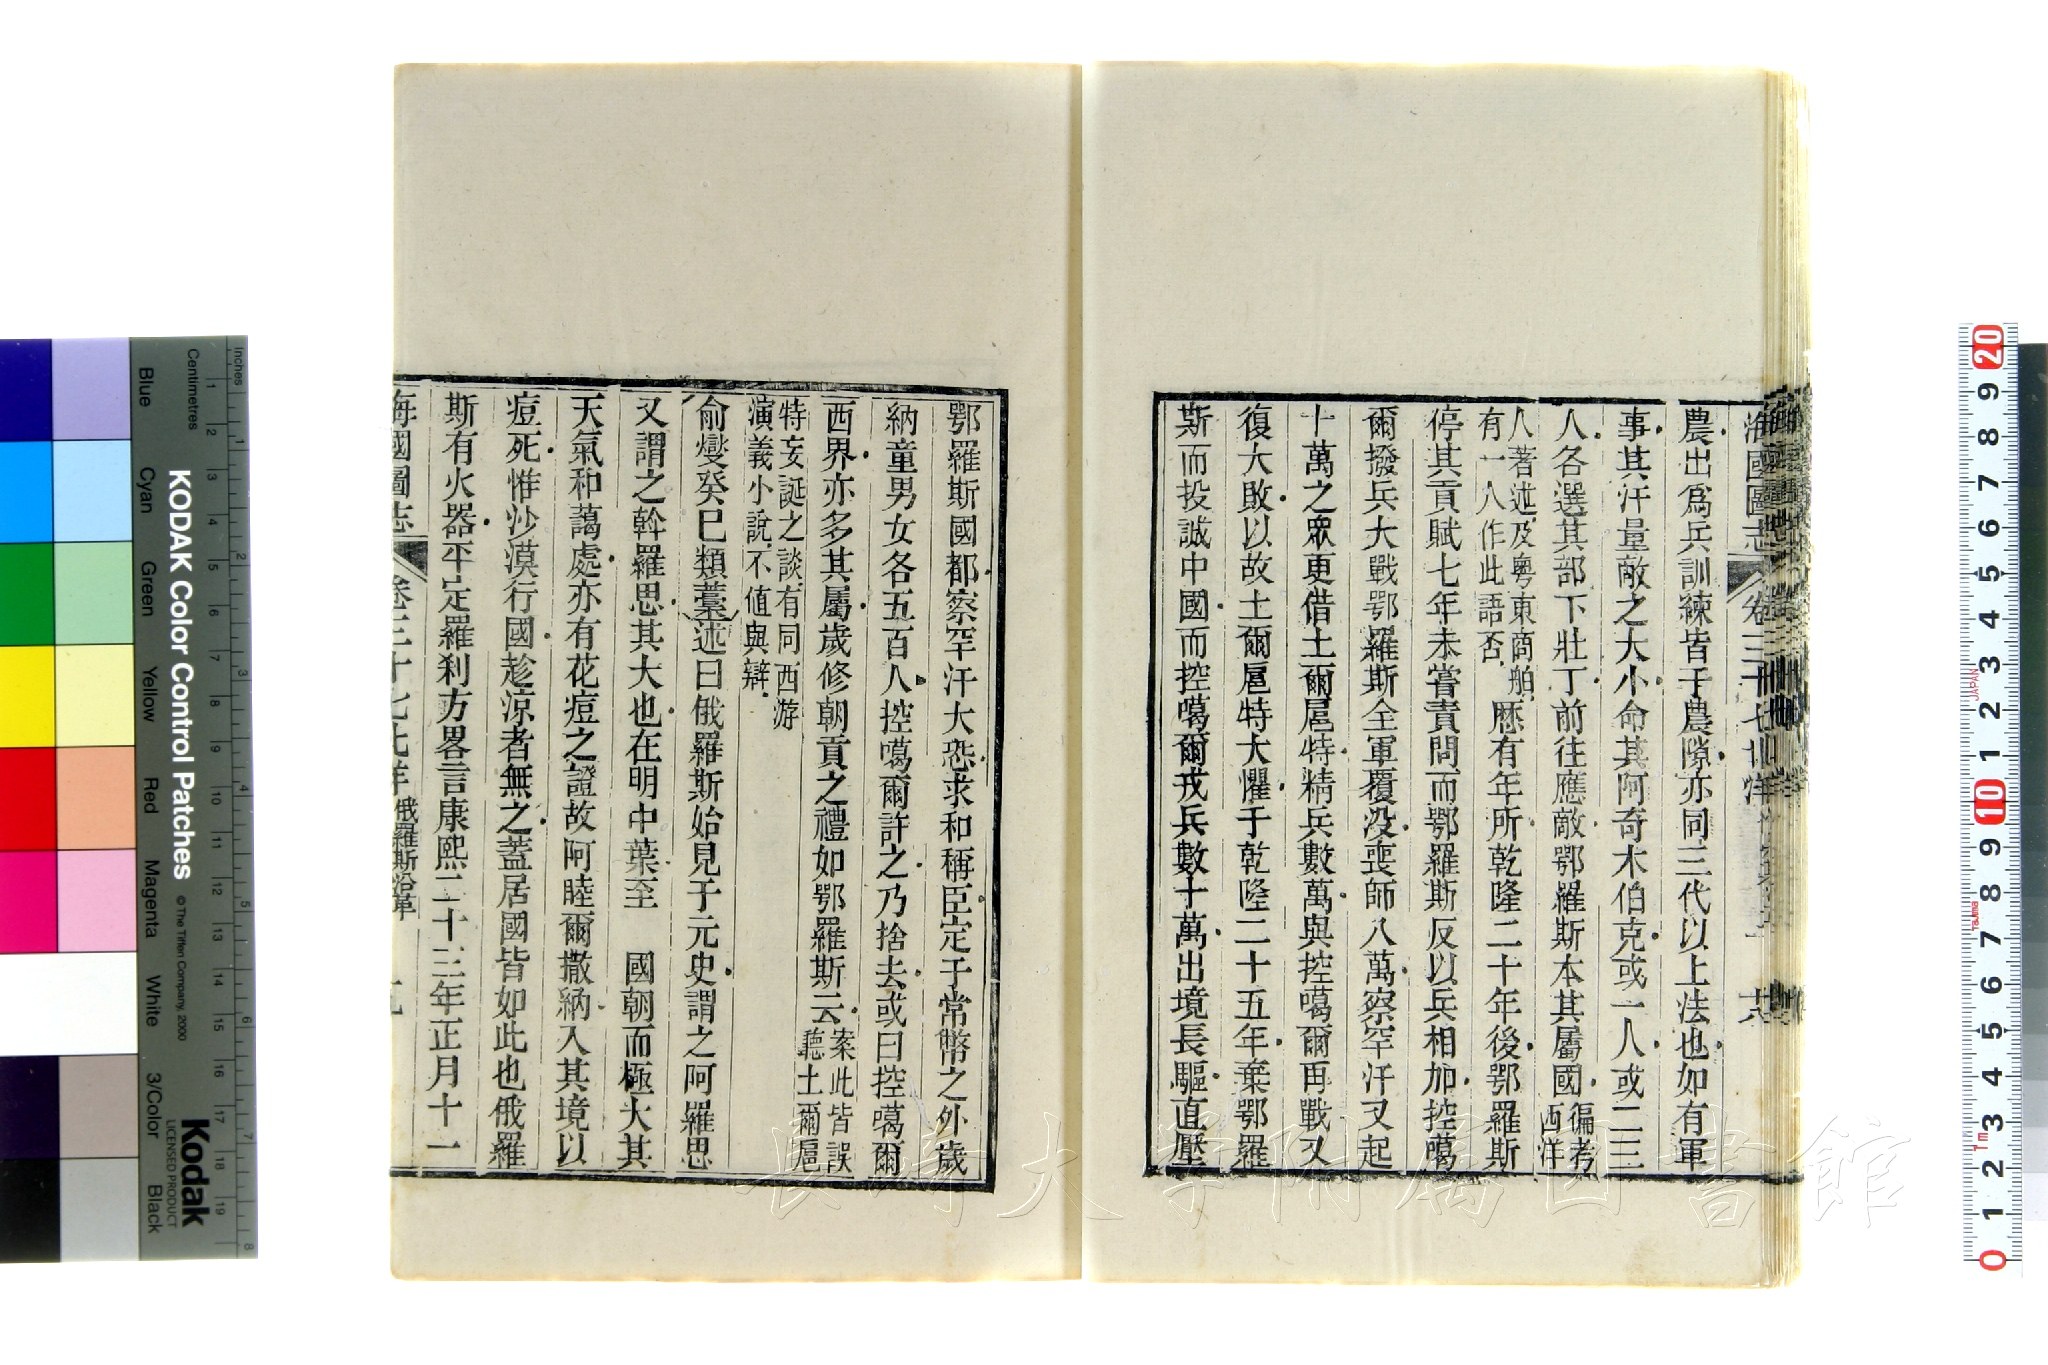 海國圖志 卷三十七
農出爲兵訓練皆于農隙亦同三代以上法也如有軍
事其汗量敵之大小命其阿奇木伯克或一人或二三
人各選其部下壯丁前往應敵鄂羅斯本其屬國徧考西洋
人著述及粵東商舶有一人作此語否歷有年所乾隆二十年後鄂羅斯
停其貢賦七年未嘗責問而鄂羅斯反以兵相加控噶
爾撥兵大戰鄂羅斯全軍覆沒喪師八萬察罕汗又起
十萬之眾更借土爾扈特精兵數萬與控噶爾再戰又
復大敗以故土爾扈特大懼于乾隆二十五年棄鄂羅
斯而投誠中國而控噶爾戎兵數十萬出境長驅直壓
鄂羅斯國都察罕汗大恐求和稱臣定于常幣之外歲
納童男女各五百人控噶爾許之乃捨去或曰控噶爾
西界亦多其屬歲修朝貢之禮如鄂羅斯云案此皆誤聽土爾扈
特妄誕之談有同西游演義小說不值與辯
俞燮癸巳類藁述曰俄羅斯始見于元史謂之阿羅思
又謂之斡羅思其大也在明中葉至 國朝而極大其
天氣和藹處亦有花痘之證故阿睦爾撒納入其境以
痘死惟沙漠行國趁涼者無之蓋居國皆如此也俄羅
斯有火器平定羅刹方畧言康熙二十三年正月十一
海國圖志 卷三十七北洋 俄羅斯沿革
KODAK Color Control Patches
©The Tiffen Company, 2000
Kodak
LICENSED PRODUCT
Inches
Centimetres
Blue
Cyan
Green
Yellow
Red
Magenta
White
3/Color
Black
1 2 3 4 5 6 7 8
1 2 3 4 5 6 7 8 9 10 11 12 13 14 15 16 17 18 19
20 9 8 7 6 5 4 3 2 1 10 9 8 7 6 5 4 3 2 1 0
JAPAN
長崎大学附属図書館